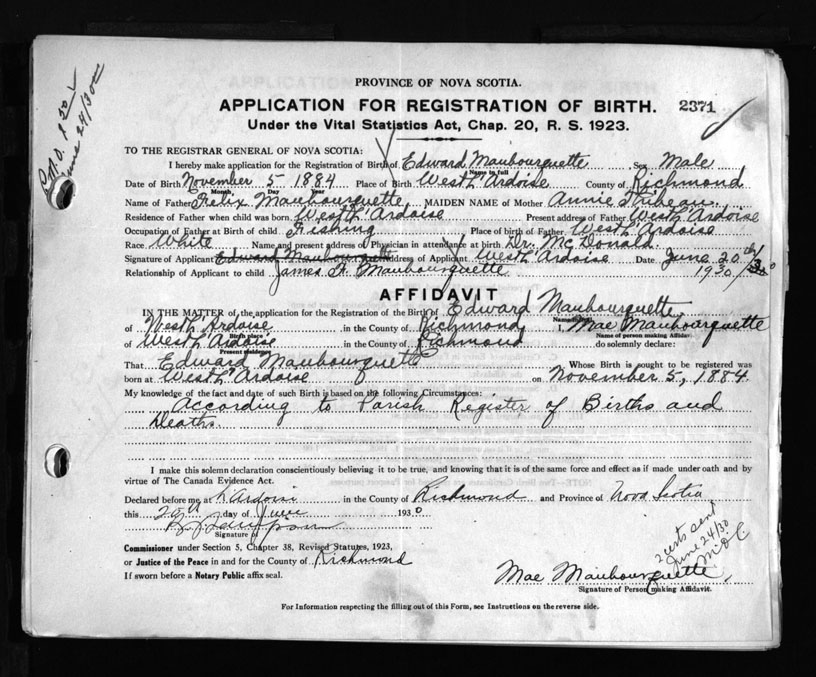 P.M.O. $ 30
June 24/30
PROVINCE OF NOVA SCOTIA.
APPLICATION FOR REGISTRATION OF BIRTH. 2371
Under the Vital Statistics Act, Chap. 20, R. S. 1923.
TO THE REGISTRAR GENERAL OF NOVA SCOTIA:
I hereby make application for the Registration of Birth of Edward Maubourquette Sex Male
Name in full
Date of Birth November 5 1884 Place of Birth West L'Ardoise County of Richmond
Month, Day Year
Name of Father Felix Maubourquette MAIDEN NAME of Mother Annie Thibeau
Residence of Father when child was born West L'Ardoise Present address of Father West L'Ardoise
Occupation of Father at Birth of child Fishing Place of birth of Father West L'Ardoise
Race White Name and present address of Physician in attendance at birth Dr. McDonald
Signature of Applicant Edward Maubourquette Address of Applicant West L'Ardoise Date June 20th
Relationship of Applicant to child James A. Maubourquette 1930
AFFIDAVIT
IN THE MATTER of the application for the Registration of the Birth of Edward Maubourquette
of West L'Ardoise in the County of Richmond, I, Mae Maubourquette
Birth place Name of person making Affidavit.
of West L'Ardoise in the County of Richmond do solemnly declare:
Present residence
That Edward Maubourquette Whose Birth is sought to be registered was
born at West L'Ardoise on November 5, 1884.
My knowledge of the fact and date of such Birth is based on the following Circumstances:
According to Parish Register of Births and
Deaths.
I make this solemn declaration conscientiously believing it to be true, and knowing that it is of the same force and effect as if made under oath and by
virtue of The Canada Evidence Act.
Declared before me at L'Ardoise in the County of Richmond and Province of Nova Scotia
this 20th day of June 1930
Signature of
Commissioner under Section 5, Chapter 38, Revised Statutes, 1923,
or Justice of the Peace in and for the County of Richmond
If sworn before a Notary Public affix seal.
2 certs sent
June 24/30
Mae Maubourquette
Signature of Person making Affidavit.
For Information respecting the filling out of this Form, see Instructions on the reverse side.